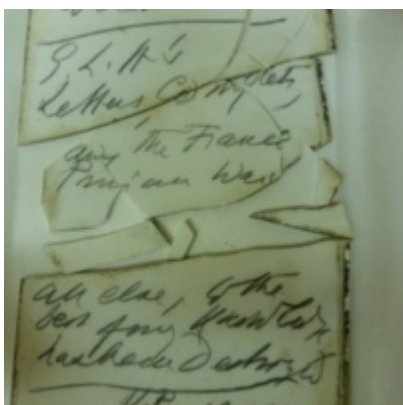 G. L. H's
Letters Complete,
the Franco
Prussian War
all else, to the
best of my Knowledge
has been Destroyed